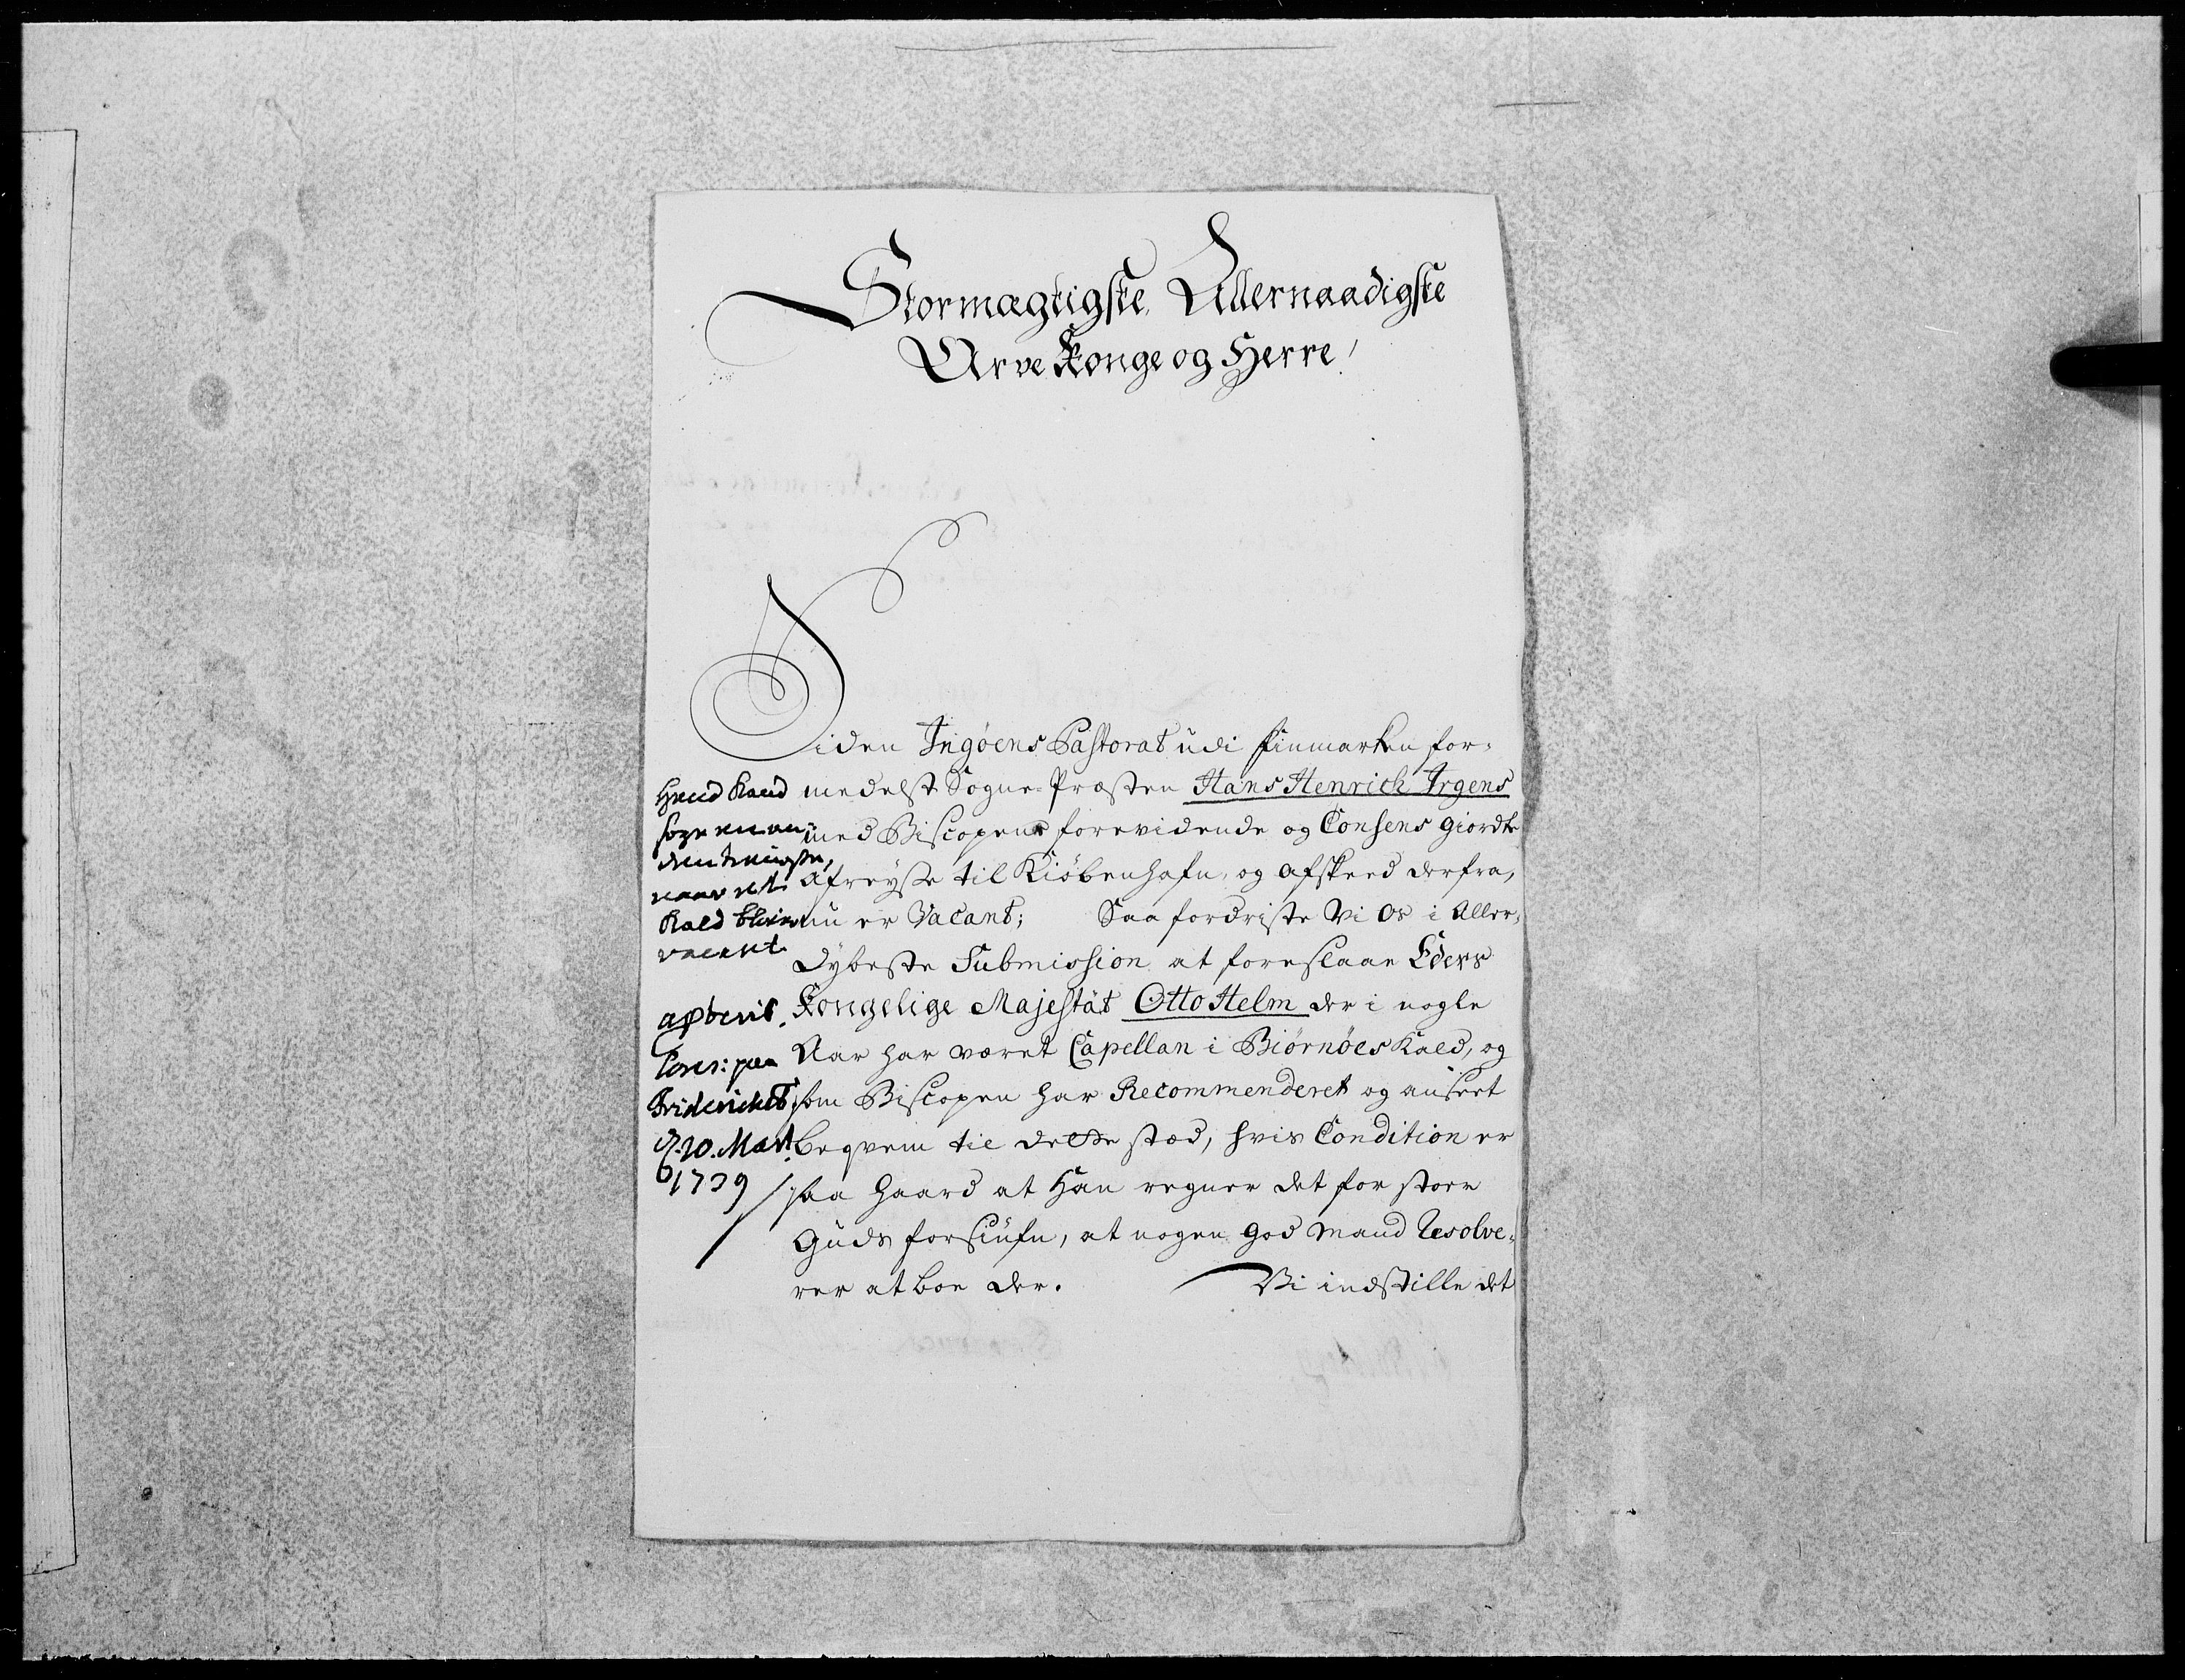 Stormægtigste Allernaadigste
Arve Konge og Herre!
Siden Ingøens Pastorat udi Finmarken for-
medelst Sogne-Præsten Hans Henrich Irgens
med Biscopens forevidende og Consens giordte
afreyse til Kiøbenhafn, og afskeed derfra,
nu er Vacant; Saa fordriste Vi os i Aller-
dybeste Submission at foreslaae Eders
Kongelige Majestät Otto Helm der i nogle
Aar har været Capellan i Biørnøes Kald, og
som Biscopen har Recommenderet og anseet
beqvem til dette stæd, hvis Condition er
saa haard at Han regner det for stoer
Guds forsiufn, at nogen god Mand Resolve-
rer at boe der. Vi indstille det
naar et
Kald bliver
vacant
approb:
Conc: paa
Fridericks
d. 20. Mart
1739